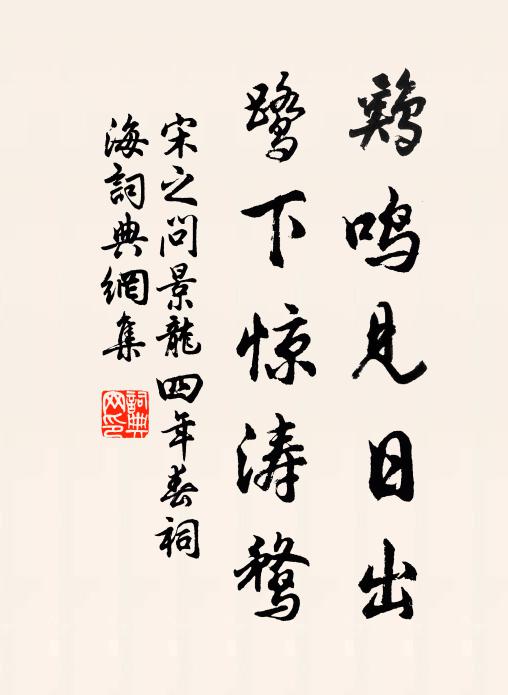 鷄鳴見日出
鷺下惊涛鶩
宋之问景龍四年春祠
海詞典網集
詞典
网印